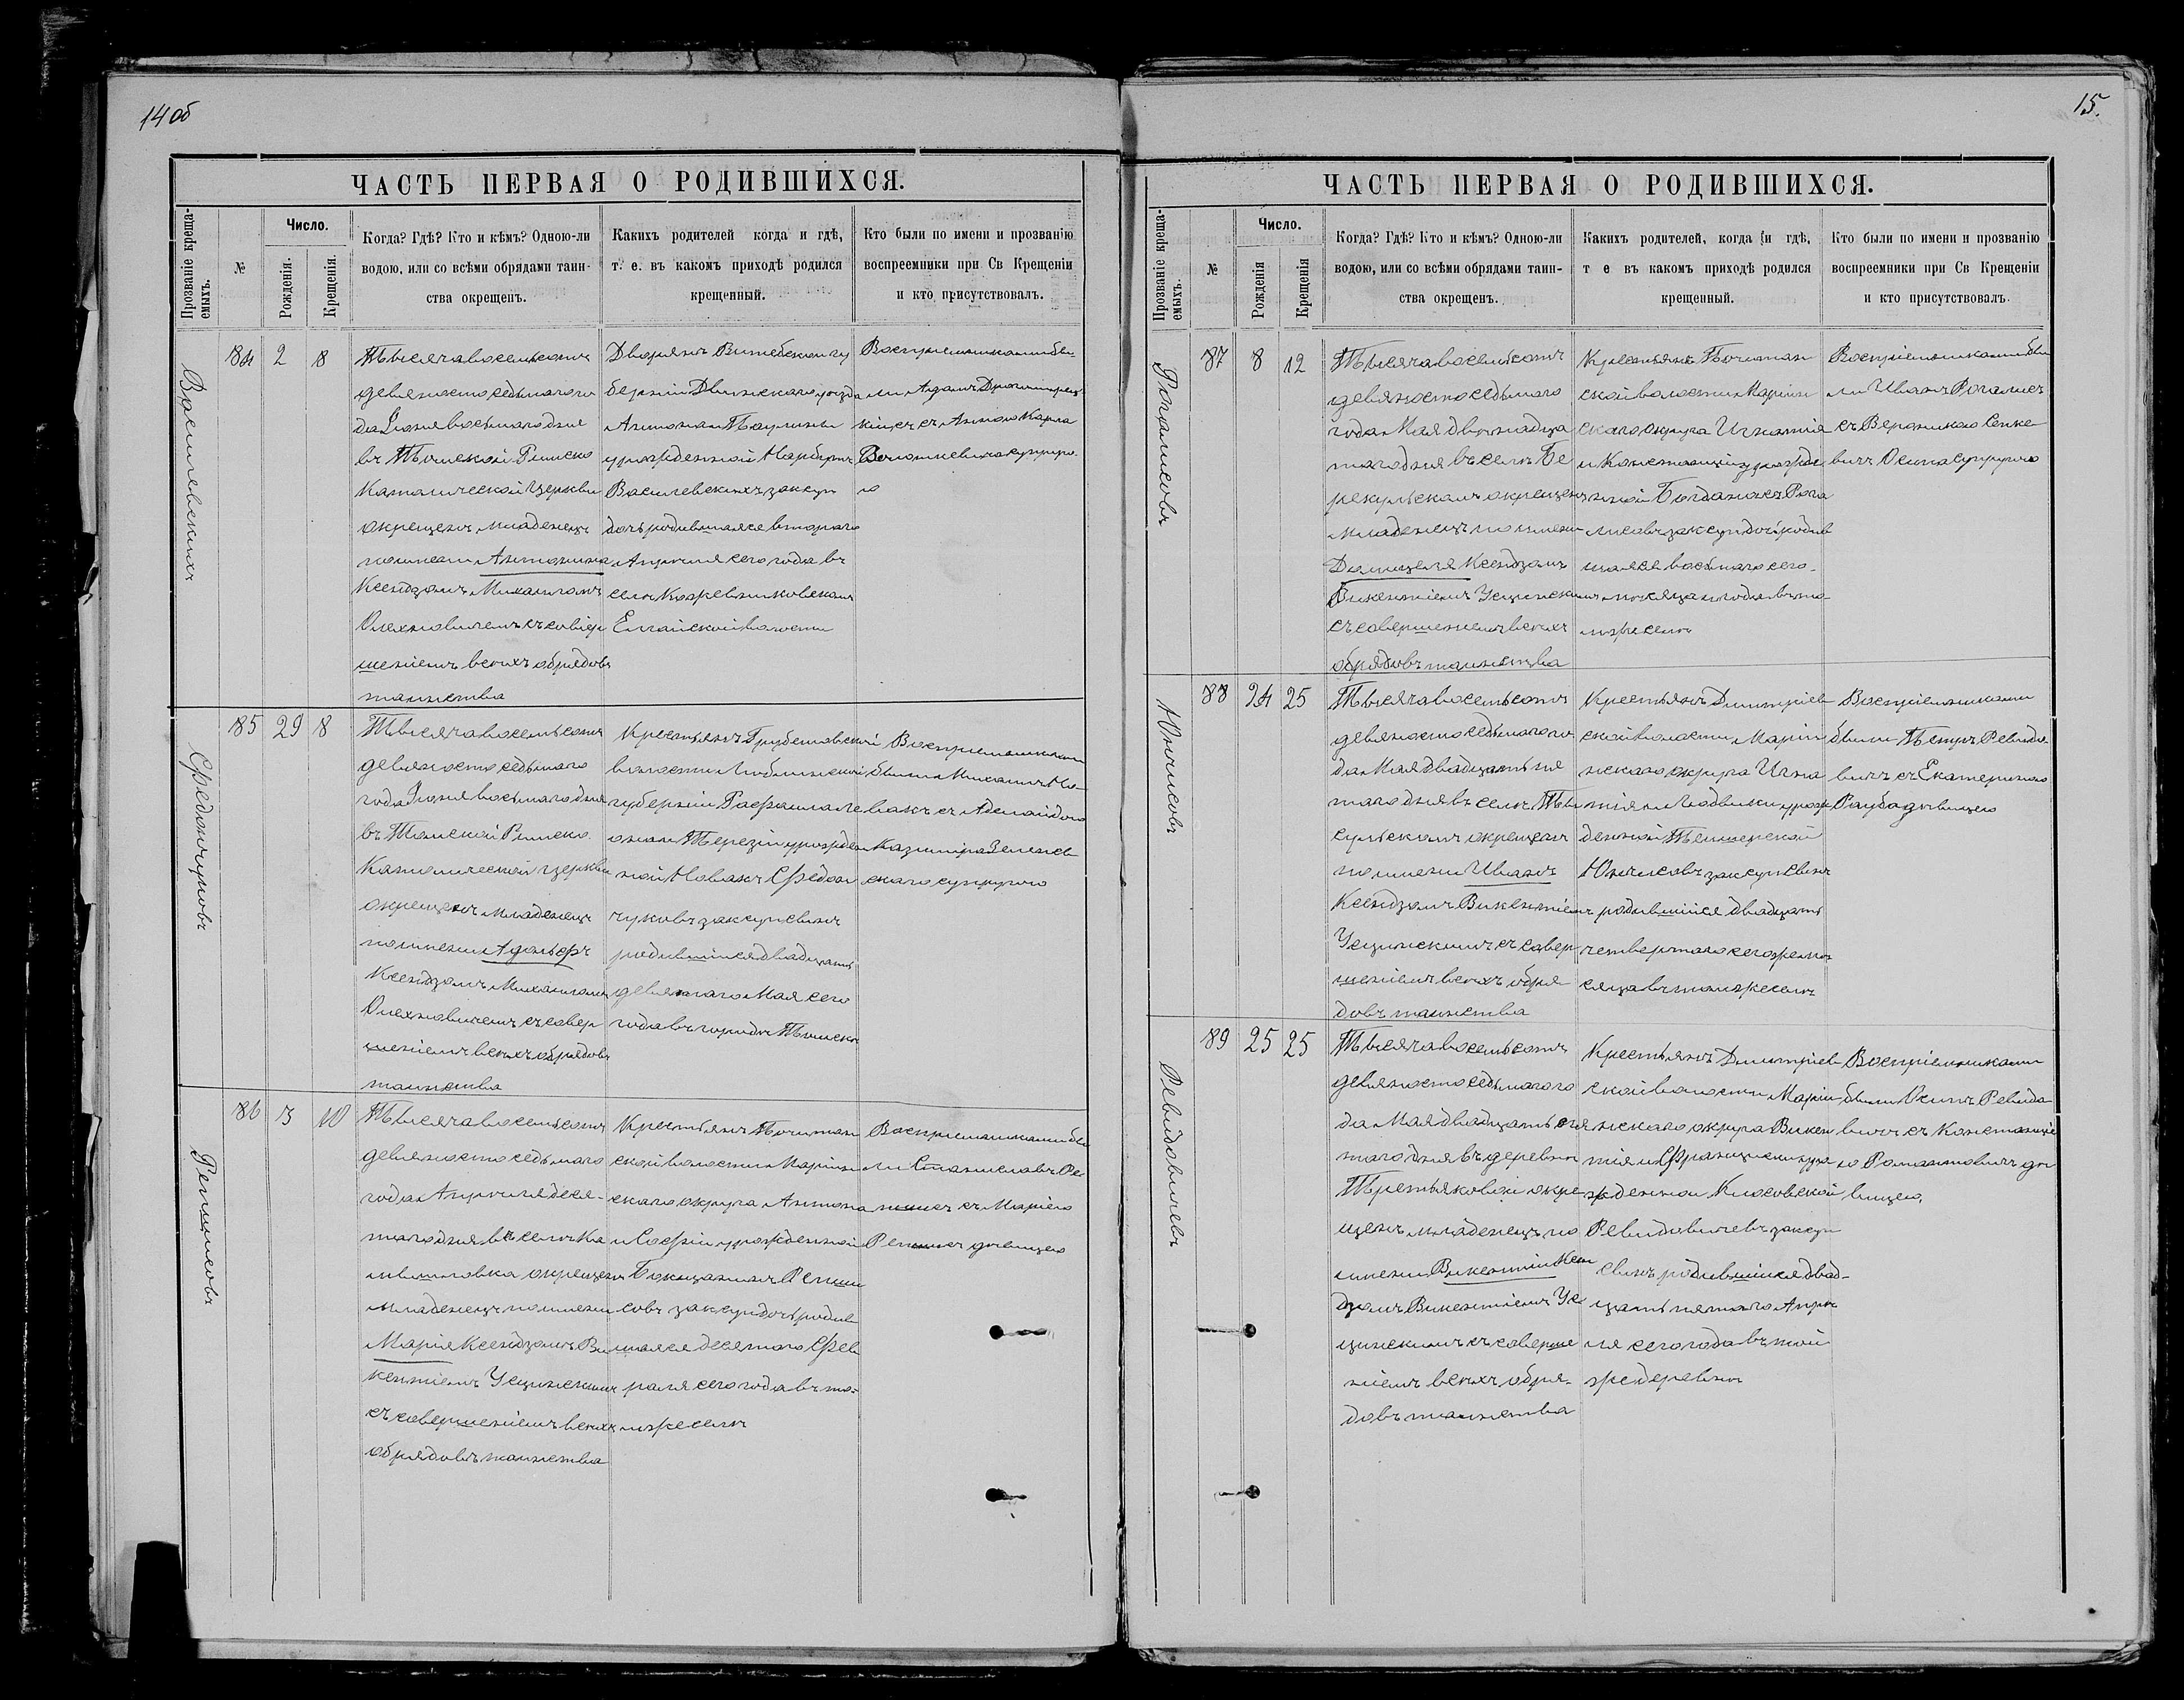 14 об
ЧАСТЬ ПЕРВАЯ О РОДИВШИХСЯ.
Прозваніе креща-
емыхъ.
№
Число.
Рожденія.
Крещенія.
Когда? Гдѣ? Кто и кѣмъ? Одною-ли
водою, или со всѣми обрядами таин-
ства окрещенъ.
Какихъ родителей когда и гдѣ,
т. е. въ какомъ приходѣ родился
крещенный.
Кто были по имени и прозванію
воспреемники при Св Крещеніи
и кто присутствовалъ.
Василевскихъ
84 2 8
Тысяча восемьсотъ
девяносто седьмаго го
да Іюня восьмаго дня
въ Томской Римско
Католической Церкви
окрещенъ младенецъ
по имени Антонина
Ксендзомъ Михаиломъ
Олехновичемъ съ совер
шеніемъ всѣхъ обрядовъ
таинства
Дворянъ Витебской гу
берніи Двинскаго уѣзда
Антона и Паулины
урожденной
Василевскихъ закон
дочь родившаяся втораго
Апрѣля сего года въ
селѣ Кожевниковскомъ
Елгайской волости
Воспріемниками бы
ли Адамъ
съ Анною Карла
супруго
ю
Федончуковъ
85 29 8
Тысяча восемьсотъ
девяносто седьмаго
года Іюня восьмаго дня
въ Томской Римско
Католической церкви
окрещенъ младенецъ
по имени Адольфъ
Ксендзомъ Михаиломъ
Олехновичемъ съ совер
шеніемъ всѣхъ обрядовъ
таинства
Крестьянъ Грубешовской
волости Люблинской
губерніи Рафаила Ле
она и Терезіи урожден
ной Новакъ Федон
чуковъ закон сынъ
родившійся двадцать
девятаго Мая сего
года въ городѣ Томскѣ
Воспріемниками
были Михаилъ Но
вакъ съ Аделаидою
Казиміра Зелинс
скаго супругою
Репшисовъ
86 3 10
Тысяча восемьсотъ
девяносто седьмаго
года Апрѣля деся-
таго дня въ селѣ Ка
окрещенъ
младенецъ по имени
Марія Ксендзомъ Ви
кентіемъ Усцинскимъ
съ совершеніемъ всѣхъ
обрядовъ таинства
Крестьянъ Почитан
ской волости Маріин
скаго округа Антона
и Софіи урожденной
Репши
совъ закон дочь родив
шаяся десятаго Фев
раля сего года въ то-
мъ же селѣ
Воспріемниками бы
ли Станиславъ Ре
пшисъ съ Маріею
Репшисъ дѣвицею
15.
ЧАСТЬ ПЕРВАЯ О РОДИВШИХСЯ.
Прозваніе креща-
емыхъ.
№
Число.
Рожденія
Крещенія
Когда? Гдѣ? Кто и кѣмъ? Одною-ли
водою, или со всѣми обрядами таин-
ства окрещенъ.
Какихъ родителей, когда и гдѣ,
т е въ какомъ приходѣ родился
крещенный.
Кто были по имени и прозванію
воспреемники при Св Крещеніи
и кто присутствовалъ.
Рогалисовъ
87 8 12
Тысяча восемьсотъ
девяносто седьмаго
года Мая двѣнадца
таго дня въ селѣ Бе
рекульскомъ окрещенъ
младенецъ по имени
Даніцеля Ксендзомъ
Викентіемъ Усцинскимъ
съ совершеніемъ всѣхъ
обрядовъ таинства
Крестьянъ Почитан
ской волости Маріин
скаго округа Игнатія
и Констанціи урожде
нной Богданасъ Рога
лисовъ закон дочь родив
шаяся восьмаго сего
мѣсяца и года въ то
мъ же селѣ
Воспріемниками бы
ли Иванъ Рогалисъ
съ Вероникою Сенке
вичъ Осипа супругою
Юнчисовъ
88 24 25
Тысяча восемьсотъ
девяносто седьмаго го
да Мая двадцать пя
таго дня въ селѣ Ти
сульскомъ окрещенъ
по имени Иванъ
Ксендзомъ Викентіемъ
Усцинскимъ съ совер
шеніемъ всѣхъ обря
довъ таинства
Крестьянъ Дмитріев
ской волости Маріи
нскаго округа Игна
тія и Людвики урож
денной
Юнчисовъ закон сынъ
родившійся двадцать
четвертаго сего же мѣ
сяца въ томъ же селѣ
Воспріемниками
были Петръ Ревидо
вичъ съ Екатериною
Рауба дѣвицею
Ревидовичевъ
89 25 25
Тысяча восемьсотъ
девяносто седьмаго го
да Мая двадцать пя
таго дня въ деревнѣ
Третьяковой окре
щенъ младенецъ по
имени Викентій Ксен
дзомъ Викентіемъ Ус
цинскимъ съ соверше
ніемъ всѣхъ обря-
довъ таинства
Крестьянъ Дмитріев
ской волости Маріи
нскаго округа Викен
тія и Францишки уро
жденной Клосовской
Ревидовичевъ закон
сынъ родившійся двад-
цать пятаго Апрѣ
ля сего года въ той
же деревнѣ
Воспріемниками
были Осипъ Ревидо
вичъ съ Констанціе
ю Романтовичъ дѣ
вицею.